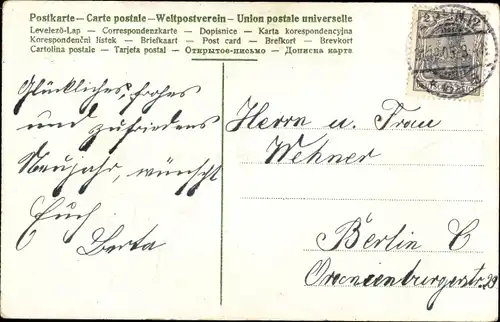 Postkarte – Carte postale – Weltpostverein – Union postale universelle
Levelező-Lap — Correspondenzkarte — Dopisnice — Karta korespondencyjna
Korespondenční lístek — Briefkaart — Post card — Brefkort — Brevkort
Cartolina postale — Tarjeta postal — Открытое-письмо — Дописна карта
Glückliches, frohes
und zufriedenes
Neujahr, wünscht
Euch
Berta
Herrn u. Frau
Wehner
Berlin C
Oranienburgerstr. 29